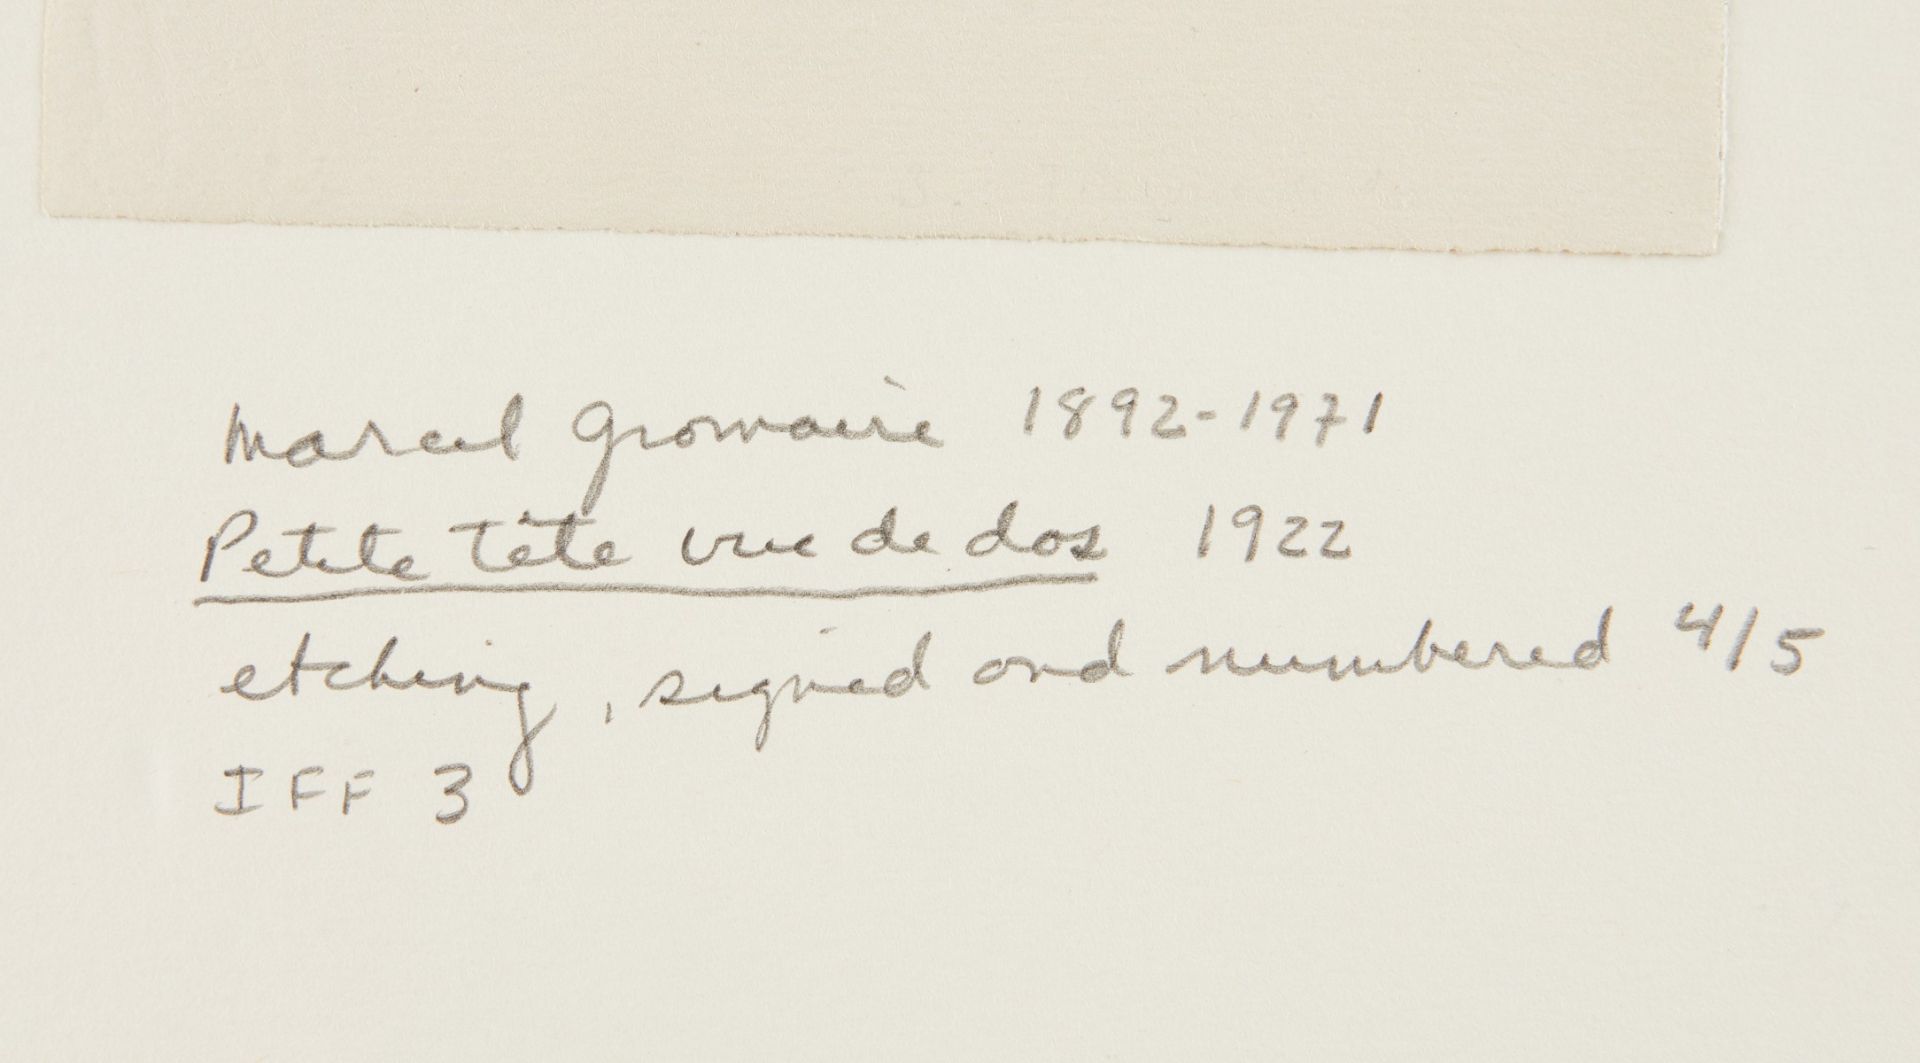 Marcel Gromaire 1892-1971
Petite tête vue de dos 1922
etching, signed and numbered 4/5
IFF 3